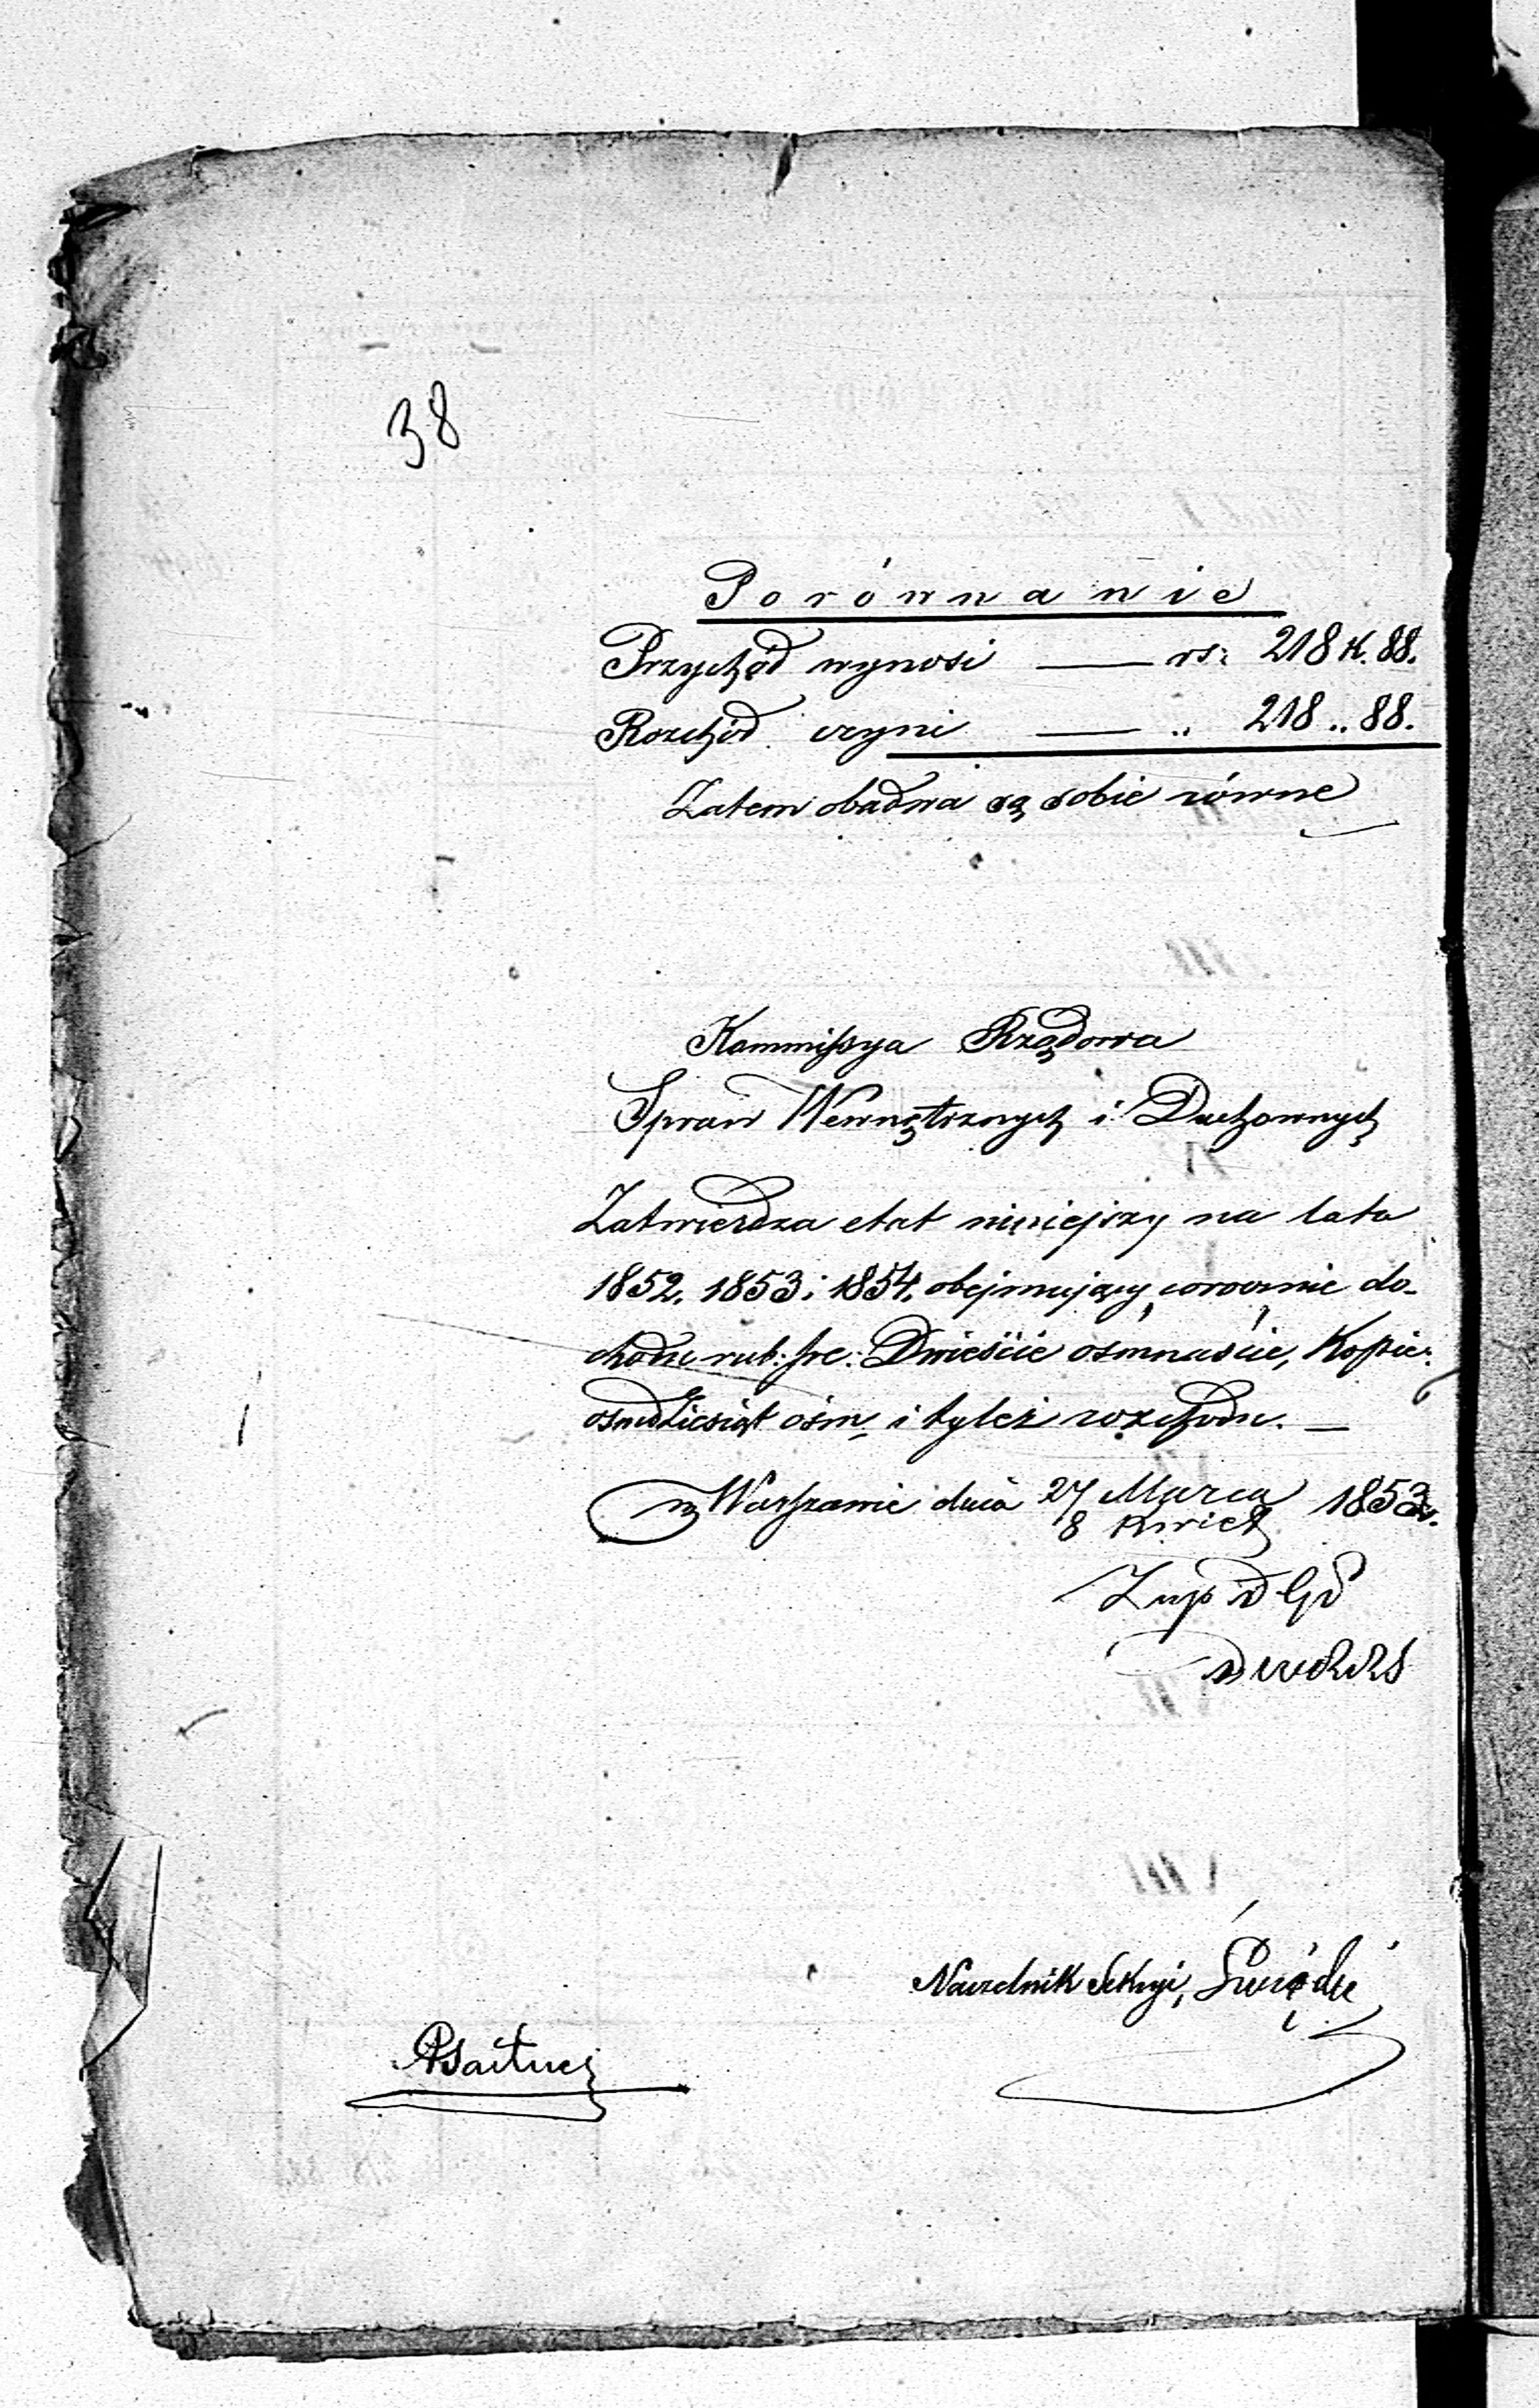 38
Porównanie
Przychód wynosi — rs: 218 k. 88.
Rozchód czyni — „ 218 „ 88.
Zatem obadwa są sobie równe
Kommissya Rządowa
Spraw Wewnętrznych i Duchownych
Zatwierdza etat niniejszy na lata
1852. 1853 i 1854. obejmujący corocznie do-
chodu rub: sre: Dwieście ośmnaście, Kopie:
ośmdziesiąt ośm, i tyleż rozchodu. —
w Warszawie dnia 27 Marca 1853 r.
8 Kwiet
Naczelnik Sekcyi,